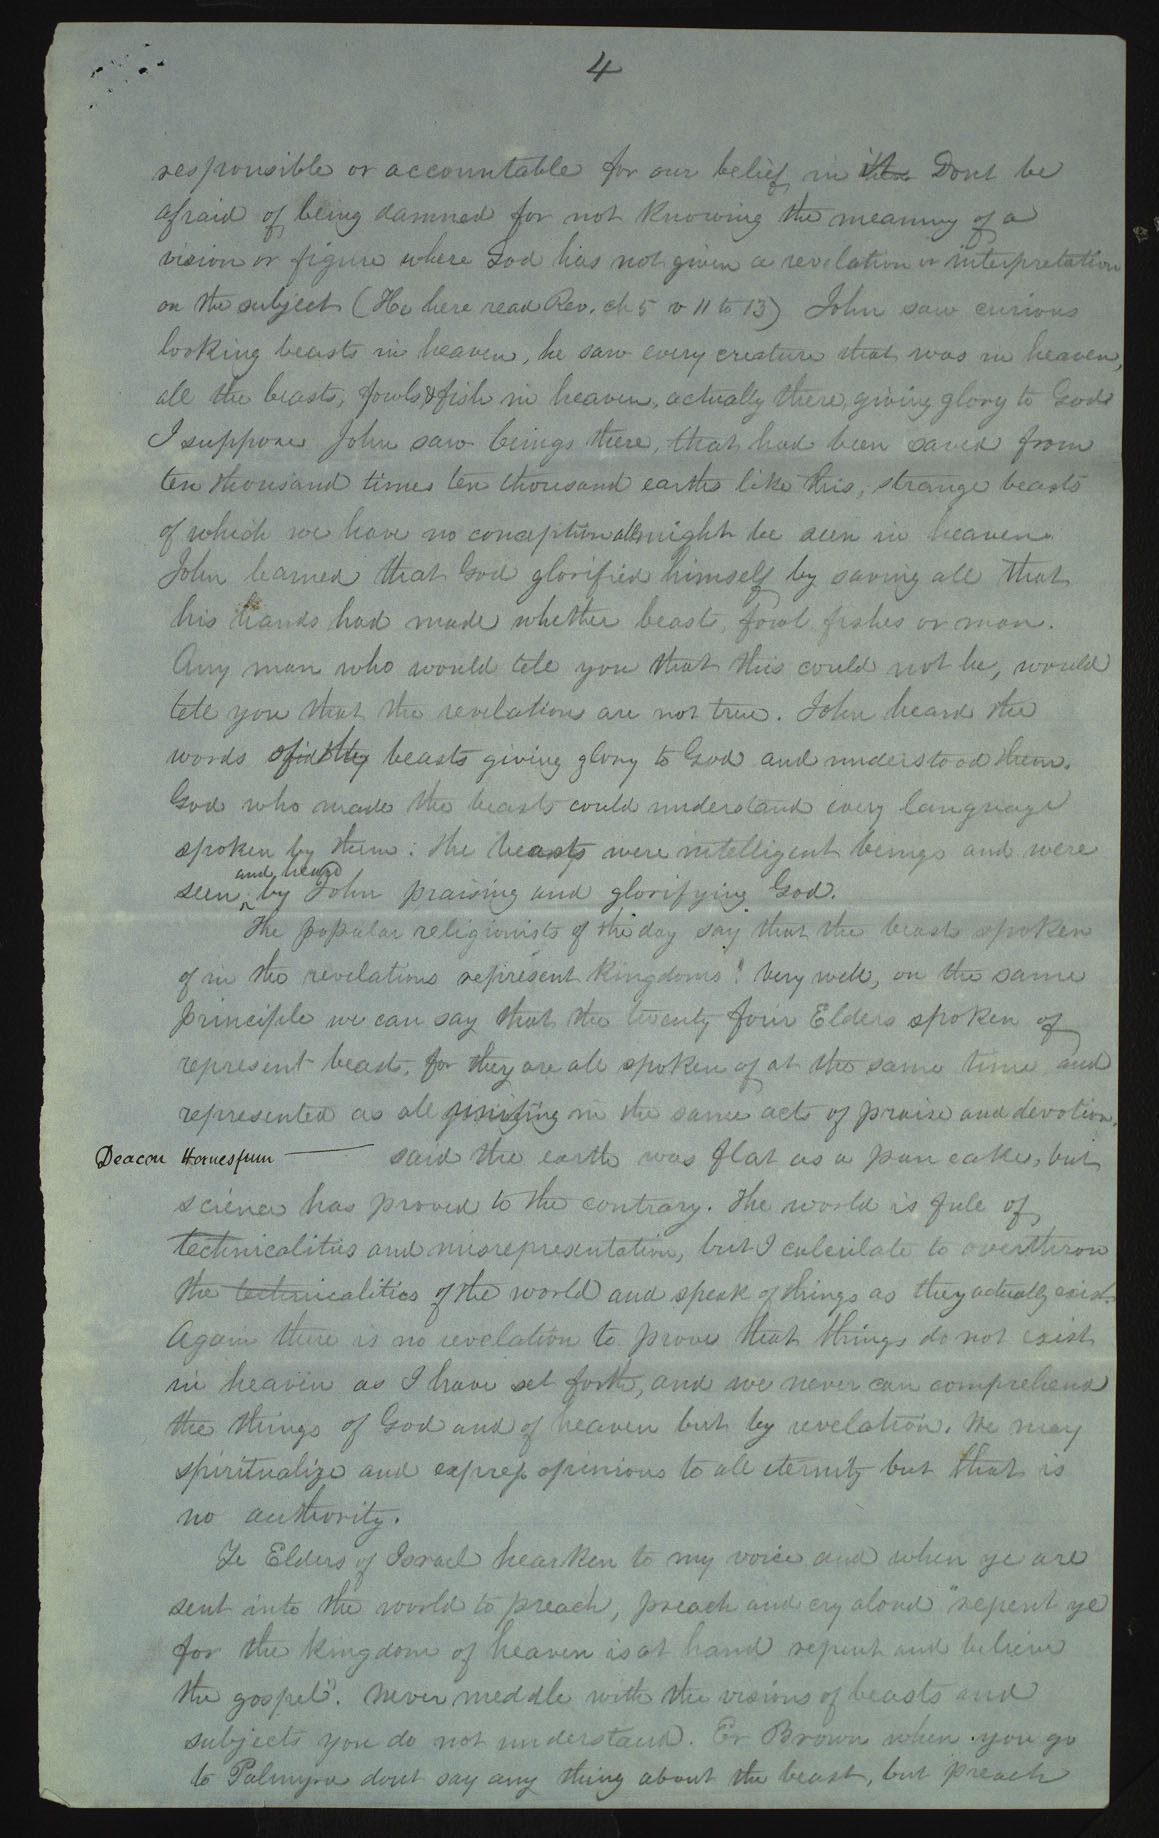 4
responsible or accountable for our belief in it. Dont be
afraid of being damned for not knowing the meaning of a
vision or figure where God has not given a revelation or interpretation
on the subject (He here read Rev. ch 5 v 11 to 13) John saw curious
looking beasts in heaven, he saw every creature that was in heaven,
all the beasts, fowls & fish in heaven, actually there, giving glory to God.
I suppose John saw beings there, that had been saved from
ten thousand times ten thousand earths like this, strange beasts
of which we have no conception all might be seen in heaven.
John learned that God glorified himself by saving all that
his hands had made whether beasts, fowl fishes or man.
Any man who would tell you that this could not be, would
tell you that the revelations are not true. John heard the
words of the beasts giving glory to God and understood them.
God who made the beasts could understand every language
spoken by them: The beasts were intelligent beings and were
seen and heard by John praising and glorifying God.
The popular religionists of the day say that the beasts spoken
of in the revelations represent kingdoms! Very well, on the same
principle we can say that the twenty four Elders spoken of
represent beasts, for they are all spoken of at the same time and
represented as all uniting in the same acts of praise and devotion.
Deacon Homespun — said the earth was flat as a pan cake, but
science has proved to the contrary. The world is full of
technicalities and misrepresentation, but I calculate to overthrow
the technicalities of the world and speak of things as they actually exist.
Again there is no revelation to prove that things do not exist
in heaven as I have set forth, and we never can comprehend
the things of God and of heaven but by revelation. We may
spiritualize and express opinions to all eternity but that is
no authority.
Ye Elders of Israel hearken to my voice and when ye are
sent into the world to preach, preach and cry aloud "repent ye
for the kingdom of heaven is at hand repent and believe
the gospel". Never meddle with the visions of beasts and
subjects you do not understand. Er Brown when you go
to Palmyra dont say any thing about the beast, but preach